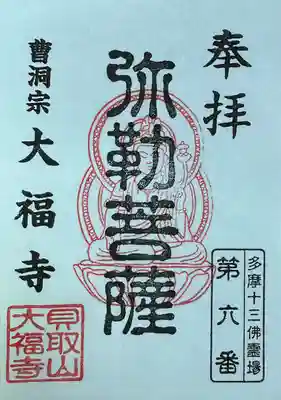 奉拝
多摩十三佛霊場
第六番
弥勒菩薩
曹洞宗
大福寺
貝取山
大福寺